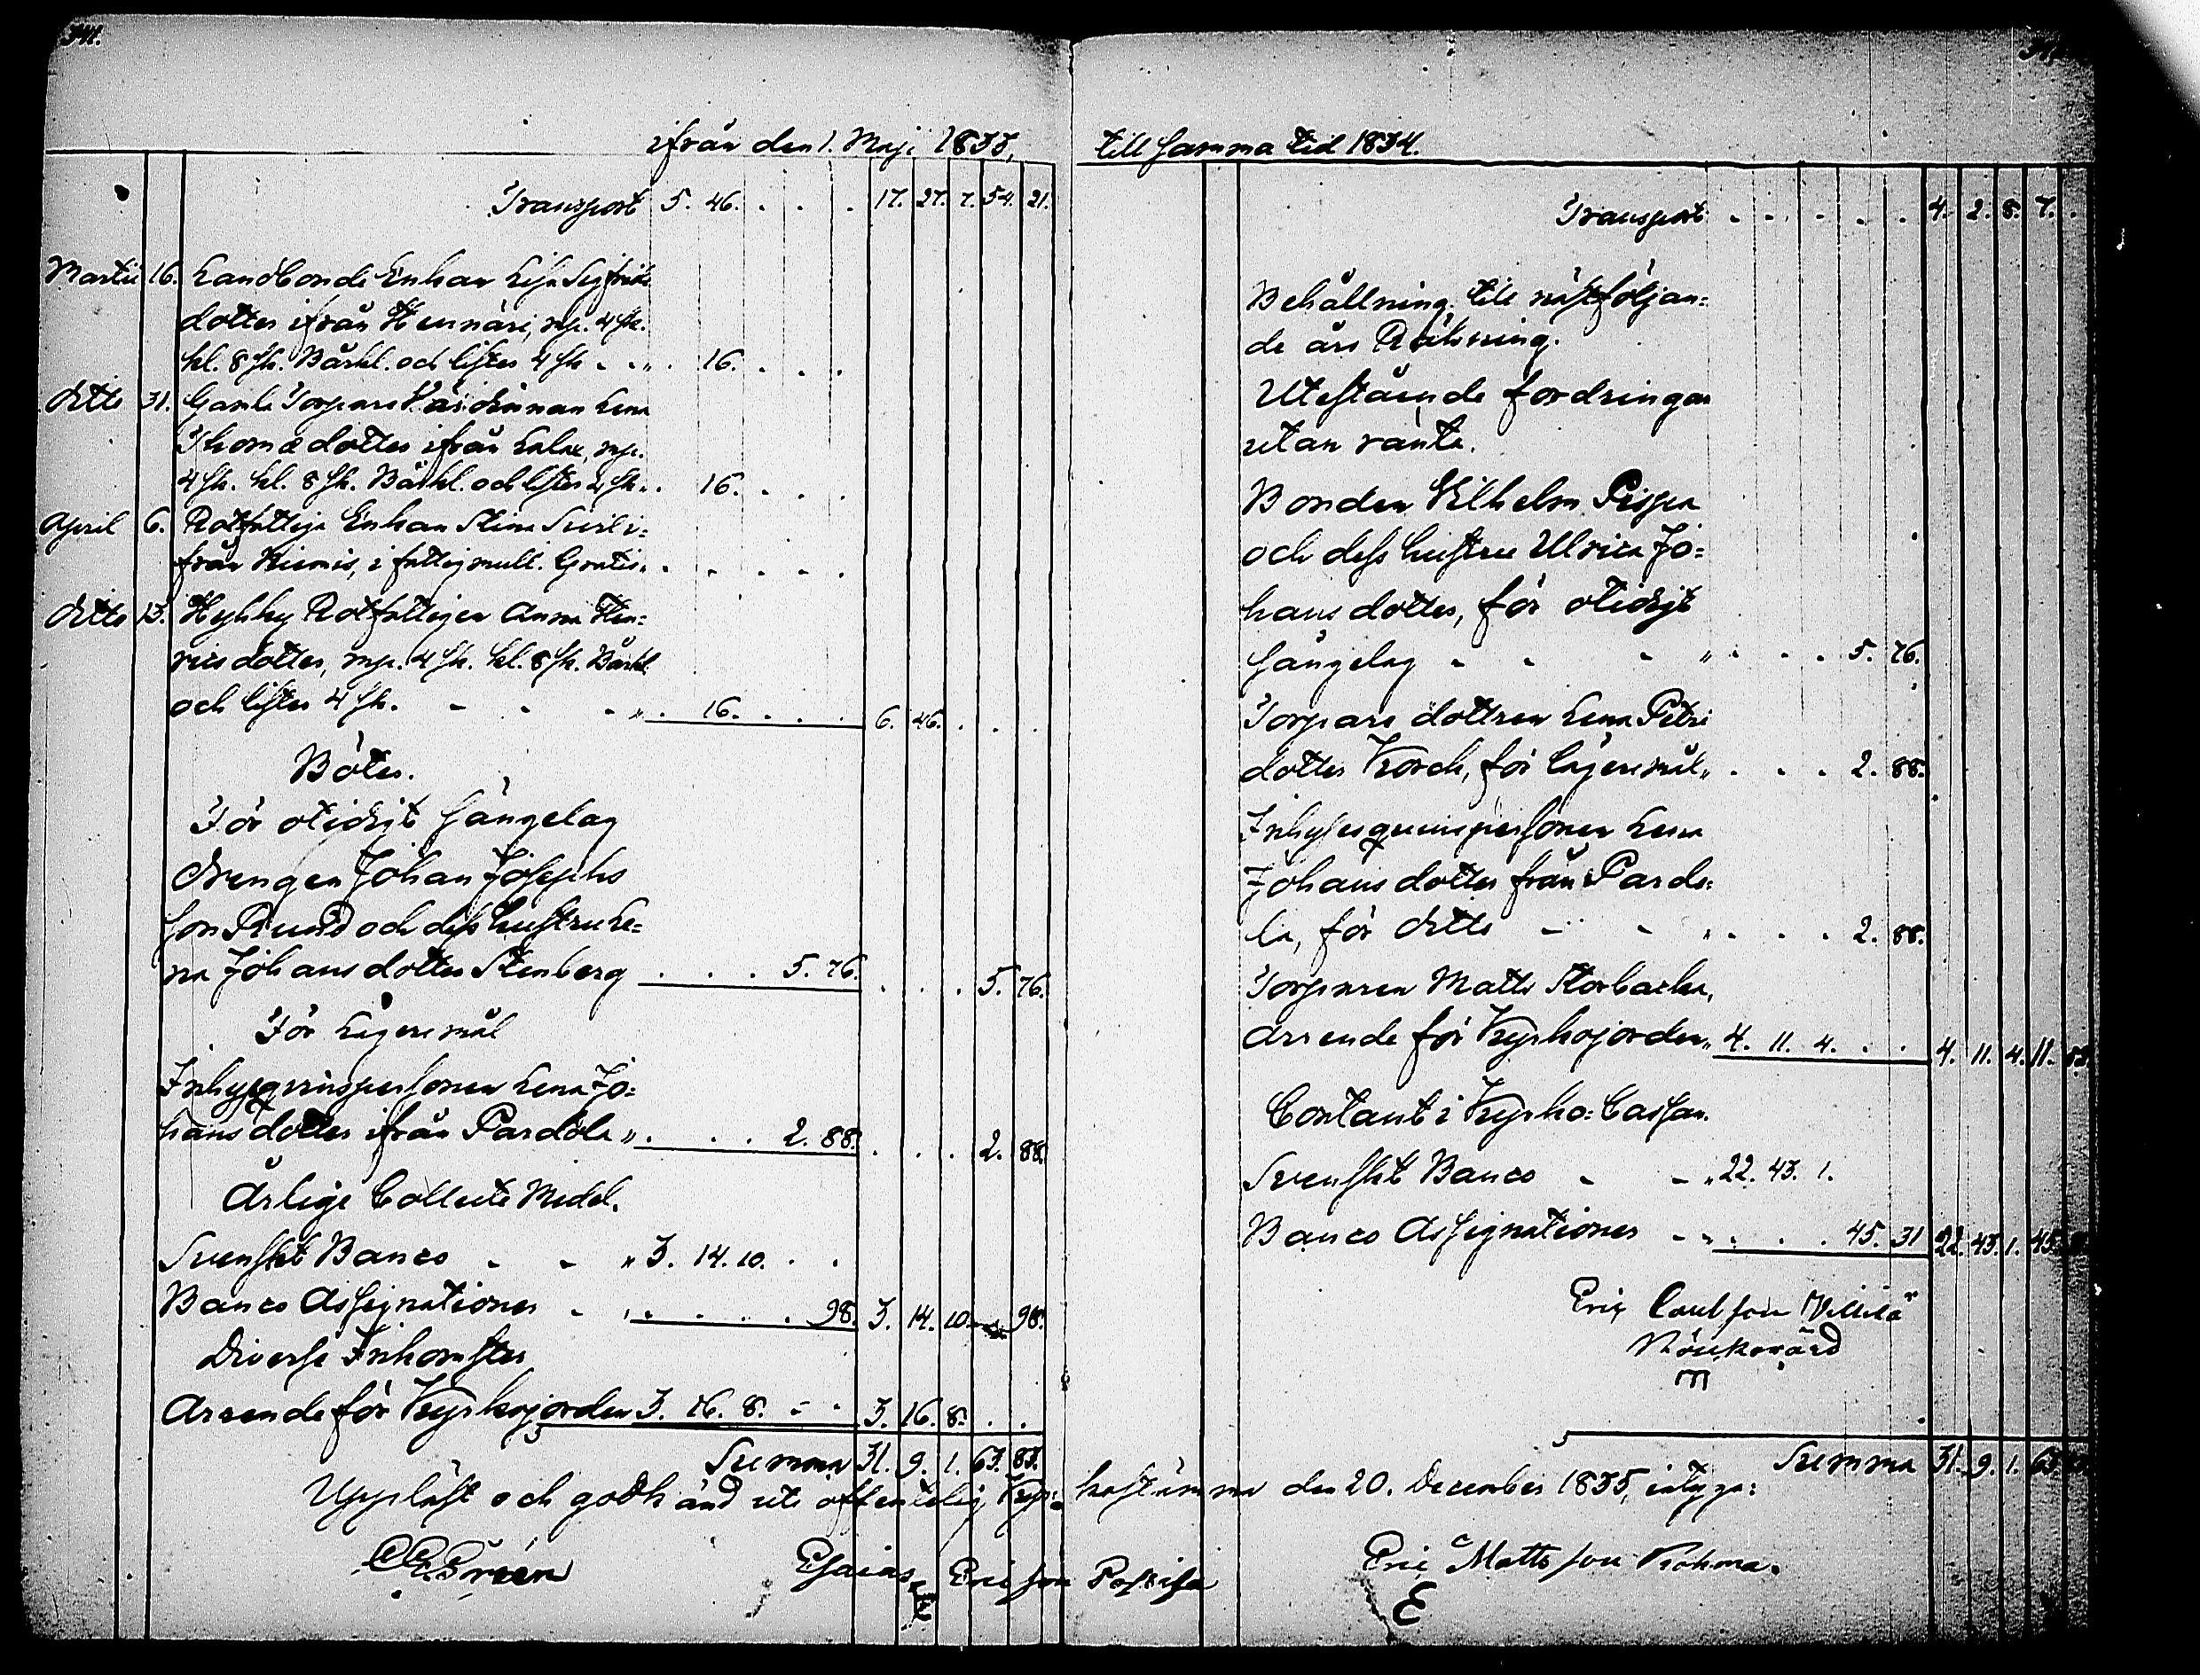 341.
ifrån den 1. Maji 1833,
Transport 5. 46. . . . 17. 27. 7. 54. 21.
Martii 16. Landbonde Enkan Lisa Sigfrids
dotter ifrån Hennäri, mp. 4 sk.
kl. 8 sk. Bårkl. och lister 4 sk - - „ . 16. . . .
ditto 31. Gamla Torpare Värdinnan Lena
Thomædotter ifrån Lalax, mp.
4 sk. kl. 8 sk. Bårkl. och lister 4 sk „ . 16. . . .
April 6. Rotfattiga Enkan Stina i-
från Kiemis, i fattigmull. Gratis „ . . . . .
ditto 13. Hyhky Rotfattigen Anna Hen=
ricsdotter, mp. 4 sk. kl. 8 sk. Bårkl.
och lister 4 sk. - - - „ . 16. . . . 6. 46. . . .
Böter.
För otidigt sängelag
Drengen Johan Josephs
son Ruud och dess hustru Le=
na Johansdotter Stenberg . . . 5. 76. . . . 5. 76.
För Lägersmål
Inhysesqvinspersonen Lena Jo=
hansdotter ifrån Pardola „ . . . 2. 88. . . . 2. 88.
Årlige Collecte Medel.
Svenskt Banco - - „ 3. 14. 10. . .
Banco Assignationer - „ . . . . 98. 3. 14. 10. 98.
Diverse Inkomster
Arrende för Kyrkojorden 3. 16. 8. - - 3. 16. 8. . .
Summa 31. 9. 1. 63. 83.
till samma tid 1834.
Transport - - - - - 4. 2. 8. 7. .
Behållning till nästföljan=
de års Räkning.
Utestående fordringar
utan ränta.
Bonden Vilhelm Pispa
och dess hustru Ulrica Jo=
hansdotter, för otidigt
sängelag - - - „ . . . 5. 76.
Torpare dottren Lena Petri
dotter Korck, för lägersmål „ . . . 2. 88.
Inhysesqvinspersonen Lena
Johansdotter från Pardo=
la, för ditto - - „ . . . 2. 88.
Torparen Matts Storbacka,
arrende för Kyrkojorden „ 4. 11. 4. . . 4. 11. 4. 11. 52.
Contant i Kyrko=Cassan.
Svenskt Banco - - „ 22. 43. 1.
Banco Assignationer - „ . . . 45. 31 22. 43. 1. 45.
Eric Carlsson
Summa 31. 9. 1. 63.
Uppläst och godkänd uti offentelig Kyr= kostämma den 20. December 1835, intyga:
Esaias Ericsson Eric Mattsson
E